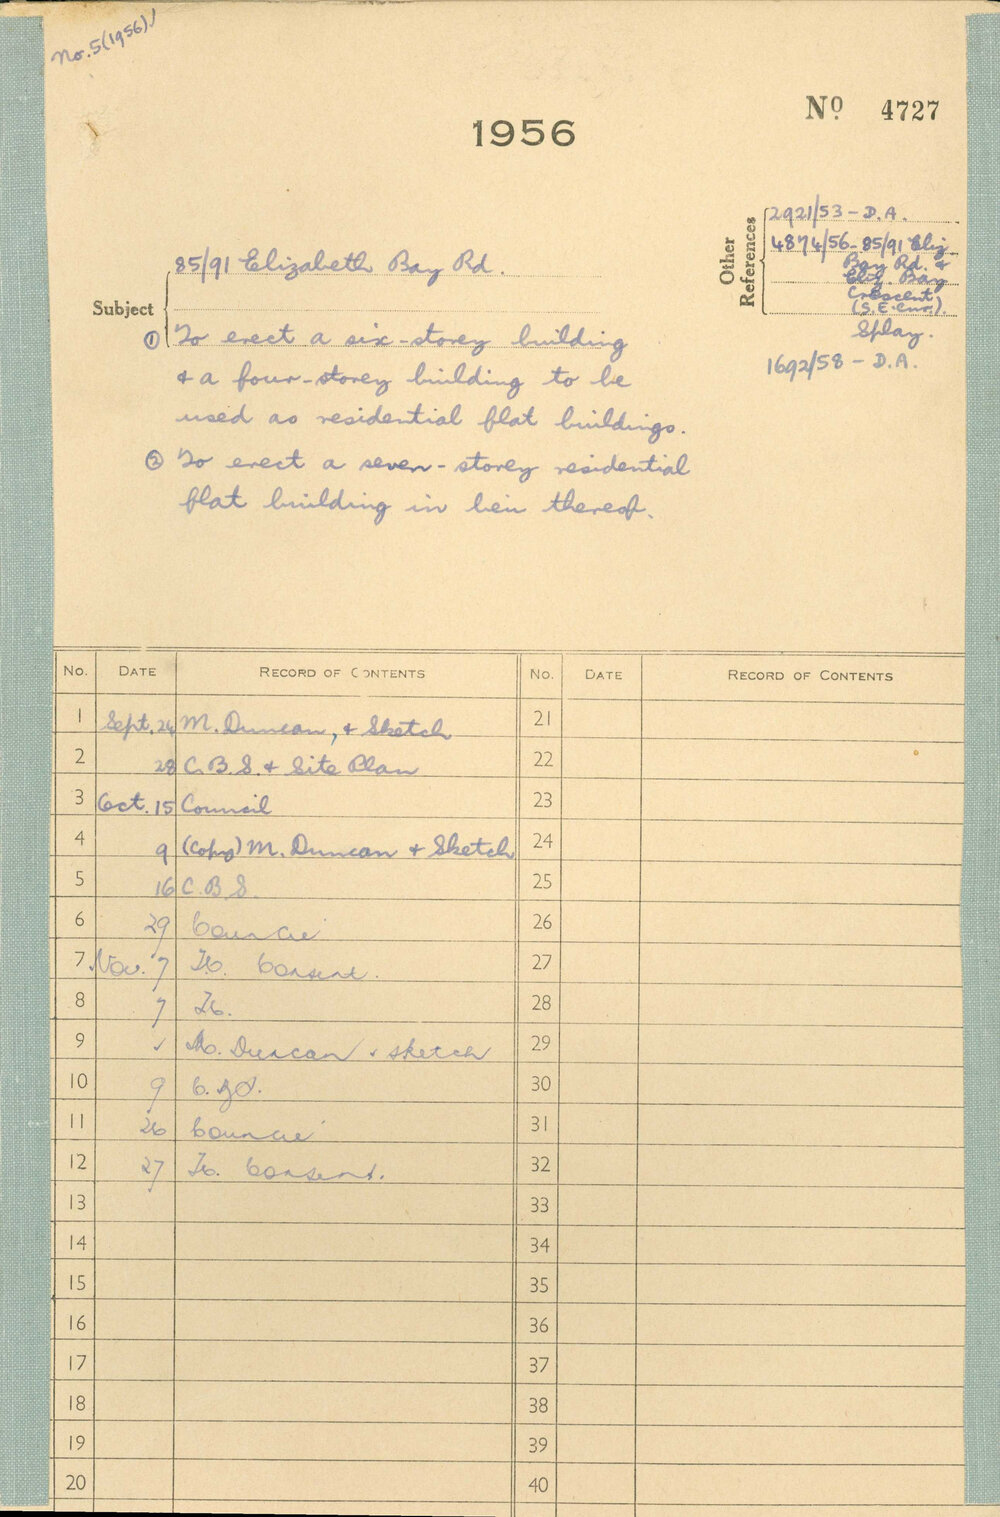 No. 5 (1956)
1956
No. 4727
Subject
85/91 Elizabeth Bay Rd.
① To erect a six-storey building
& a four-storey building to be
used as residential flat buildings.
② To erect a seven-storey residential
flat building in lieu thereof.
Other References
2921/53 - D.A.
4874/56 - 85/91 Eliz.
Bay Rd. &
Eliz. Bay
Crescent
(S.E. cnr.).
Splay.
1692/58 - D.A.
No. DATE RECORD OF CONTENTS
1 Sept. 24 M. Duncan, & Sketch
2 28 C.B.S. & Site Plan
3 Oct. 15 Council
4 9 (Copy) M. Duncan & Sketch
5 16 C.B.S.
6 29 Council
7 Nov. 7 To. Consent.
8 7 To.
9 M. Duncan & sketch
10 9
11 26 Council
12 27 To. Consent.
13
14
15
16
17
18
19
20
No. DATE RECORD OF CONTENTS
21
22
23
24
25
26
27
28
29
30
31
32
33
34
35
36
37
38
39
40